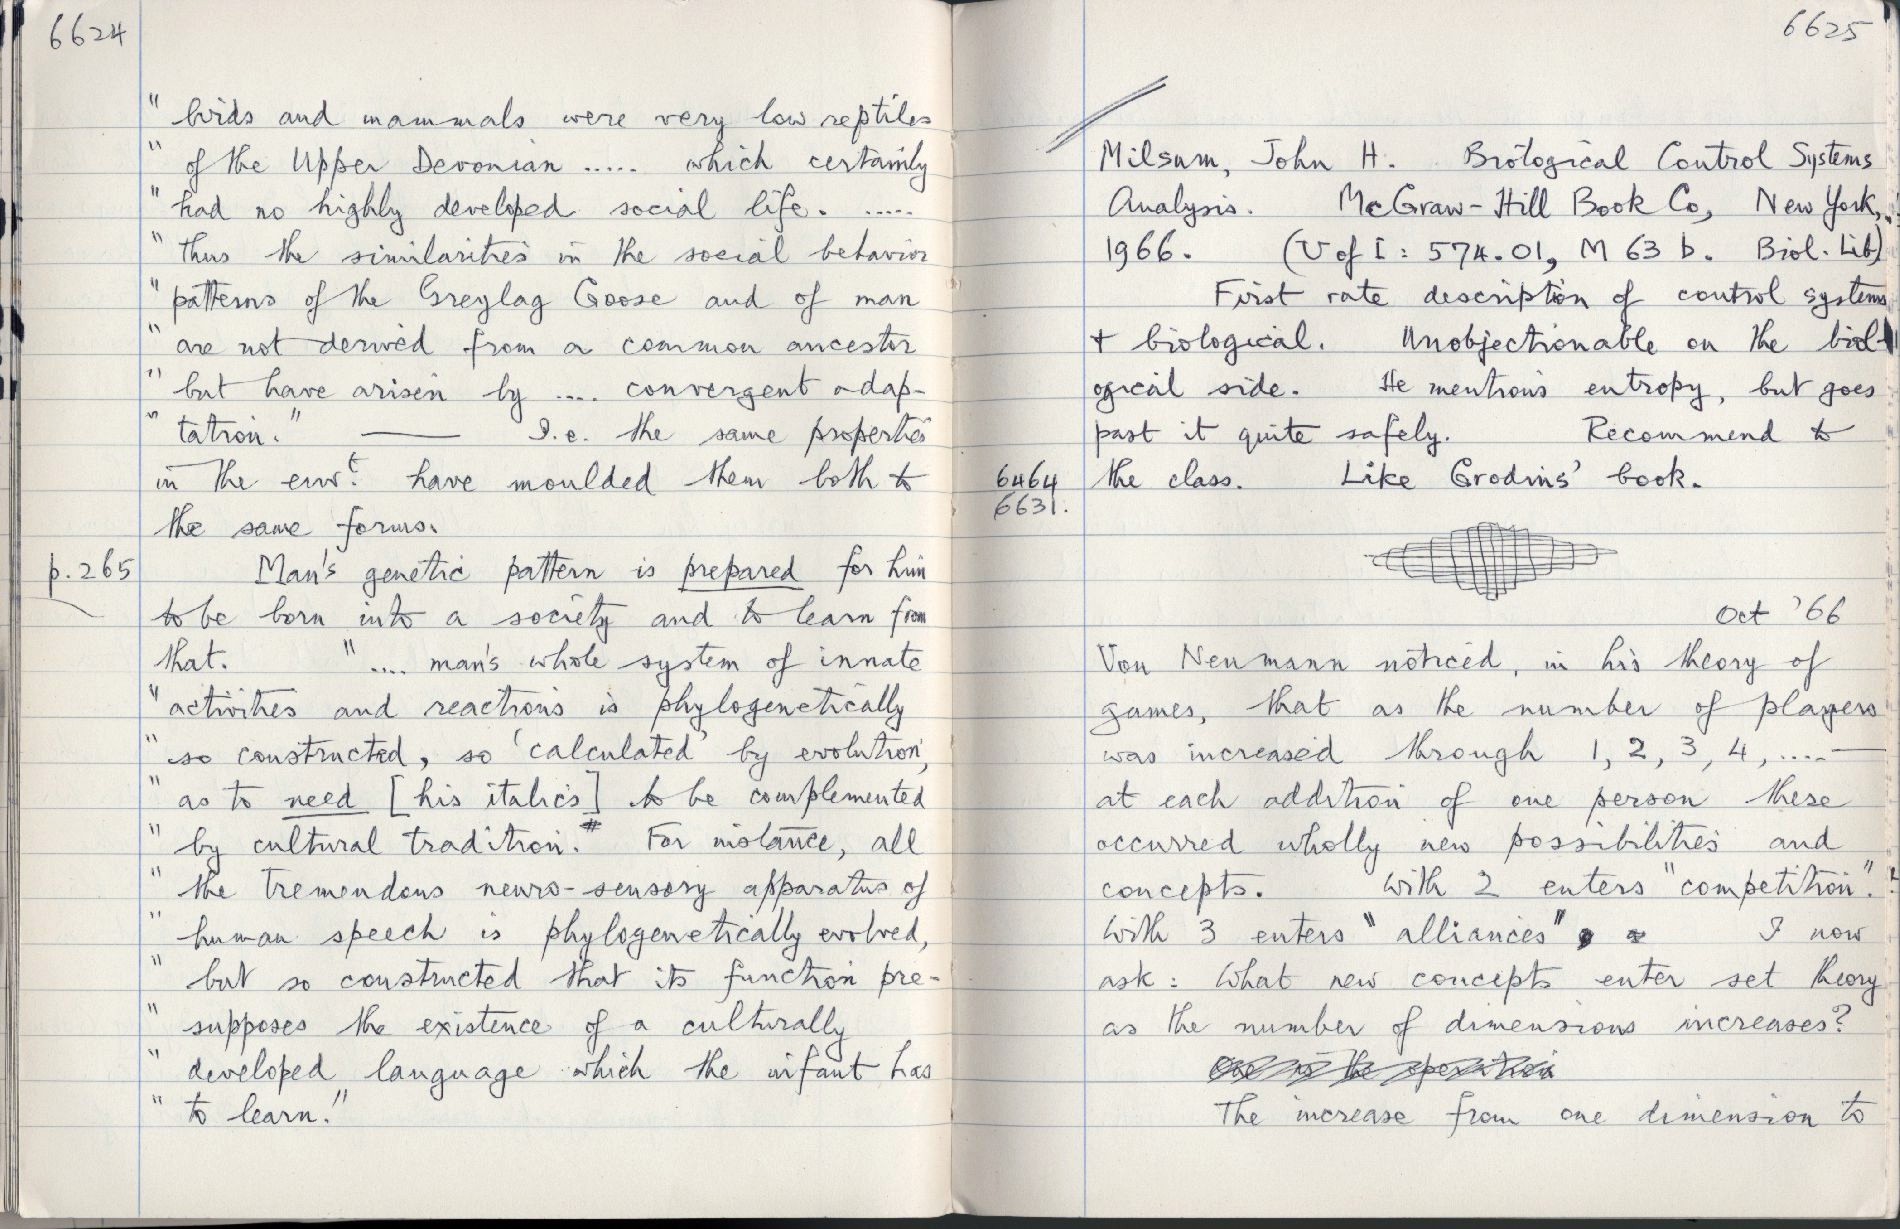 6624
" birds and mammals were very low reptiles
" of the Upper Devonian ..... which certainly
" had no highly developed social life. .....
" thus the similarities in the social behavior
" patterns of the Greylag Goose and of man
" are not derived from a common ancestor
" but have arisen by .... convergent adap-
" tation." — I.e. the same properties
in the envt. have moulded them both to
the same forms.
p.265 Man's genetic pattern is prepared for him
to be born into a society and to learn from
that. ".... man's whole system of innate
" activities and reactions is phylogenetically
" so constructed, so 'calculated' by evolution,
" as to need [his italics] to be complemented
" by cultural tradition.# For instance, all
" the tremendous neuro-sensory apparatus of
" human speech is phylogenetically evolved,
" but so constructed that its function pre-
" supposes the existence of a culturally
" developed language which the infant has
" to learn."
6625
Milsum, John H. Biological Control Systems
Analysis. McGraw-Hill Book Co, New York,
1966. (U of I: 574.01, M 63 b. Biol. Lib)
First rate description of control systems
+ biological. Unobjectionable on the biol-
ogical side. He mentions entropy, but goes
past it quite safely. Recommend to
6464 the class. Like Grodins' book.
6631.
Oct '66
Von Neumann noticed, in his theory of
games, that as the number of players
was increased through 1, 2, 3, 4, .... —
at each addition of one person these
occurred wholly new possibilities and
concepts. With 2 enters "competition".
With 3 enters "alliances", I now
ask: What new concepts enter set theory
as the number of dimensions increases?
One is the operation
The increase from one dimension to